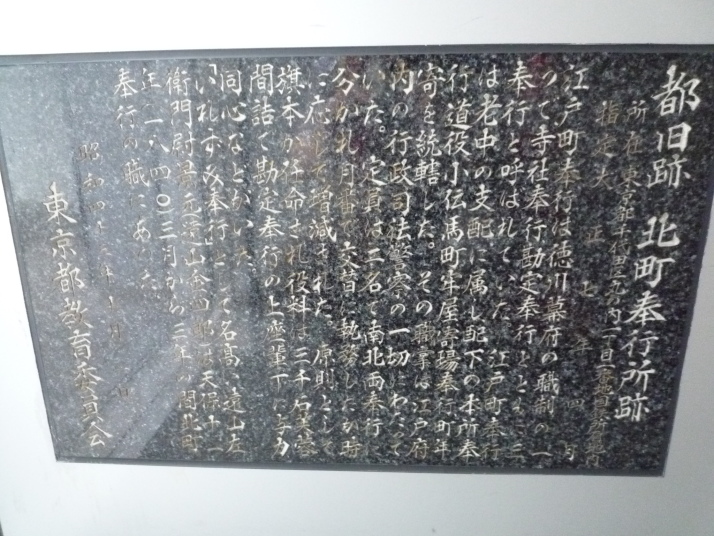 都旧跡 北町奉行所跡
所在 東京都千代田区丸の内一丁目
指定 大正七年四月
江戸町奉行は徳川幕府の職制の一
つで寺社奉行勘定奉行とともに三
奉行と呼ばれていた。江戸町奉行
は老中の支配に属し配下の本所奉
行道役小伝馬町牢屋寄場奉行町年
寄を統轄した。その職掌は江戸府
内の行政司法警察の一切にわたって
いた。定員は二名で南北両奉行に
分かれ月番で交替に執務したが時
に応じて増減された。原則として
旗本が任命され役料は三千石芙蓉
間詰で勘定奉行の上座輩下に与力
同心などがいた。
いれずみ奉行として名高い遠山左
衛門尉景元(遠山金四郎)は天保十一
年(一八四〇)三月から三年の間北町
奉行の職にあった。
昭和四十 年 月 日
東京都教育委員会